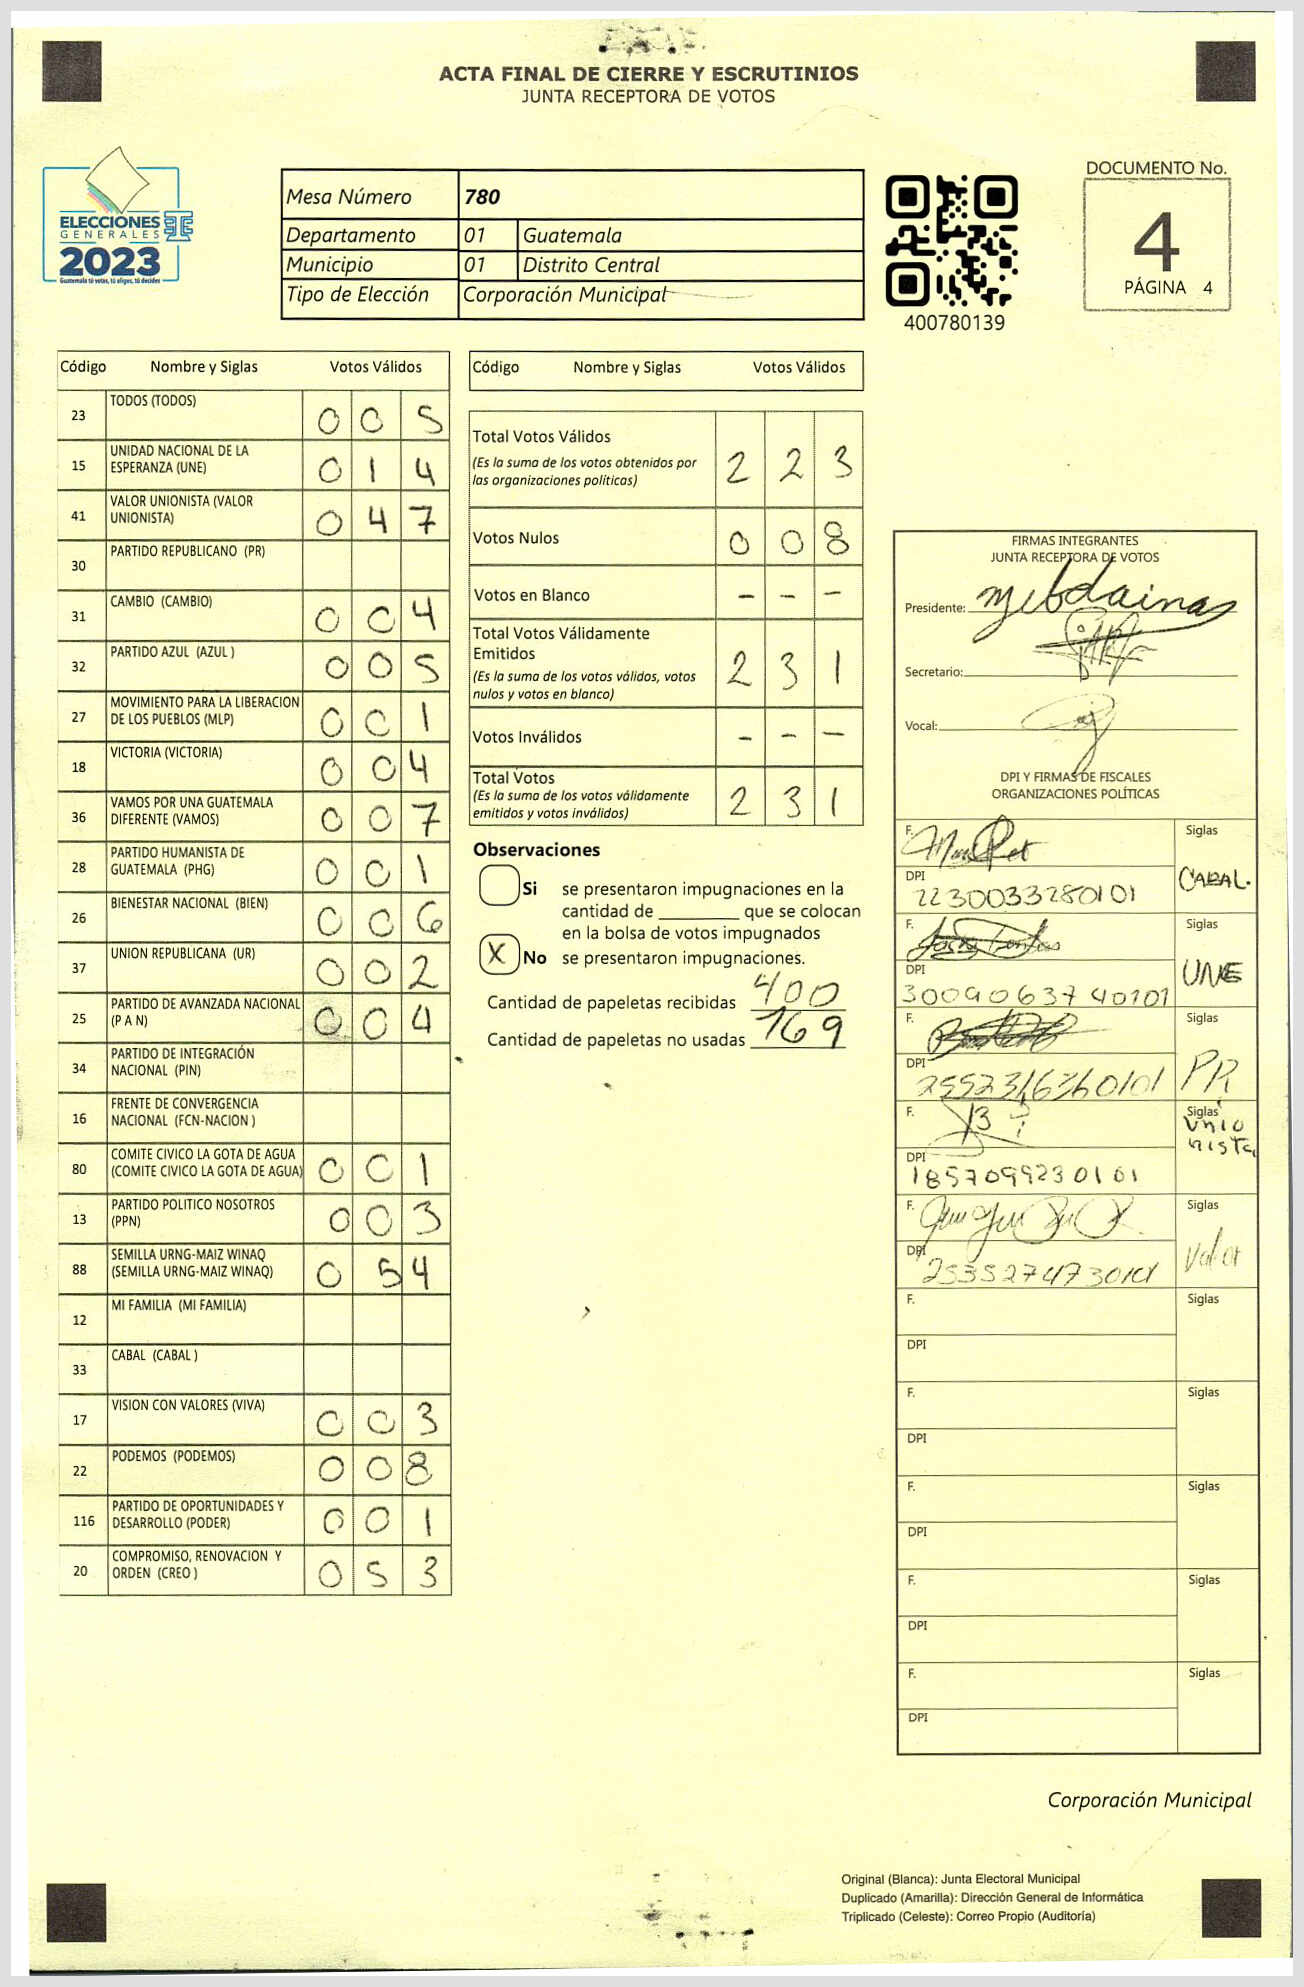 ACTA FINAL DE CIERRE Y ESCRUTINIOS
JUNTA RECEPTORA DE VOTOS
ELECCIONES
GENERALES
2023
Guatemala tú votas, tú eliges, tú decides
Mesa Número 780
Departamento 01 Guatemala
Municipio 01 Distrito Central
Tipo de Elección Corporación Municipal
400780139
DOCUMENTO No.
4
PÁGINA 4
Código Nombre y Siglas Votos Válidos
23 TODOS (TODOS) 0 0 5
15 UNIDAD NACIONAL DE LA
ESPERANZA (UNE) 0 1 4
41 VALOR UNIONISTA (VALOR
UNIONISTA) 0 4 7
30 PARTIDO REPUBLICANO (PR)
31 CAMBIO (CAMBIO) 0 0 4
32 PARTIDO AZUL (AZUL ) 0 0 5
27 MOVIMIENTO PARA LA LIBERACION
DE LOS PUEBLOS (MLP) 0 0 1
18 VICTORIA (VICTORIA) 0 0 4
36 VAMOS POR UNA GUATEMALA
DIFERENTE (VAMOS) 0 0 7
28 PARTIDO HUMANISTA DE
GUATEMALA (PHG) 0 0 1
26 BIENESTAR NACIONAL (BIEN) 0 0 6
37 UNION REPUBLICANA (UR) 0 0 2
25 PARTIDO DE AVANZADA NACIONAL
(P A N) 0 0 4
34 PARTIDO DE INTEGRACIÓN
NACIONAL (PIN)
16 FRENTE DE CONVERGENCIA
NACIONAL (FCN-NACION )
80 COMITE CIVICO LA GOTA DE AGUA
(COMITE CIVICO LA GOTA DE AGUA) 0 0 1
13 PARTIDO POLITICO NOSOTROS
(PPN) 0 0 3
88 SEMILLA URNG-MAIZ WINAQ
(SEMILLA URNG-MAIZ WINAQ) 0 5 4
12 MI FAMILIA (MI FAMILIA)
33 CABAL (CABAL )
17 VISION CON VALORES (VIVA) 0 0 3
22 PODEMOS (PODEMOS) 0 0 8
116 PARTIDO DE OPORTUNIDADES Y
DESARROLLO (PODER) 0 0 1
20 COMPROMISO, RENOVACION Y
ORDEN (CREO ) 0 5 3
Código Nombre y Siglas Votos Válidos
Total Votos Válidos
(Es la suma de los votos obtenidos por
las organizaciones politicas) 2 2 3
Votos Nulos 0 0 8
Votos en Blanco – – –
Total Votos Válidamente
Emitidos
(Es la suma de los votos válidos, votos
nulos y votos en blanco) 2 3 1
Votos Inválidos – – –
Total Votos
(Es la suma de los votos válidamente
emitidos y votos inválidos) 2 3 1
Observaciones
Si se presentaron impugnaciones en la
cantidad de ________ que se colocan
en la bolsa de votos impugnados
X No se presentaron impugnaciones.
Cantidad de papeletas recibidas 400
Cantidad de papeletas no usadas 169
FIRMAS INTEGRANTES
JUNTA RECEPTORA DE VOTOS
Presidente:
Secretario:
Vocal:
DPI Y FIRMAS DE FISCALES
ORGANIZACIONES POLÍTICAS
F. Siglas
CABAL.
DPI
2230033280101
F. Siglas
UNE
DPI
3009063740101
F. Siglas
PR
DPI
2552316360101
F. Siglas
Unio
nista
DPI
1857099230101
F. Siglas
Valor
DPI
2535274730101
F. Siglas
DPI
F. Siglas
DPI
F. Siglas
DPI
F. Siglas
DPI
F. Siglas
DPI
Corporación Municipal
Original (Blanca): Junta Electoral Municipal
Duplicado (Amarilla): Dirección General de Informática
Triplicado (Celeste): Correo Propio (Auditoría)